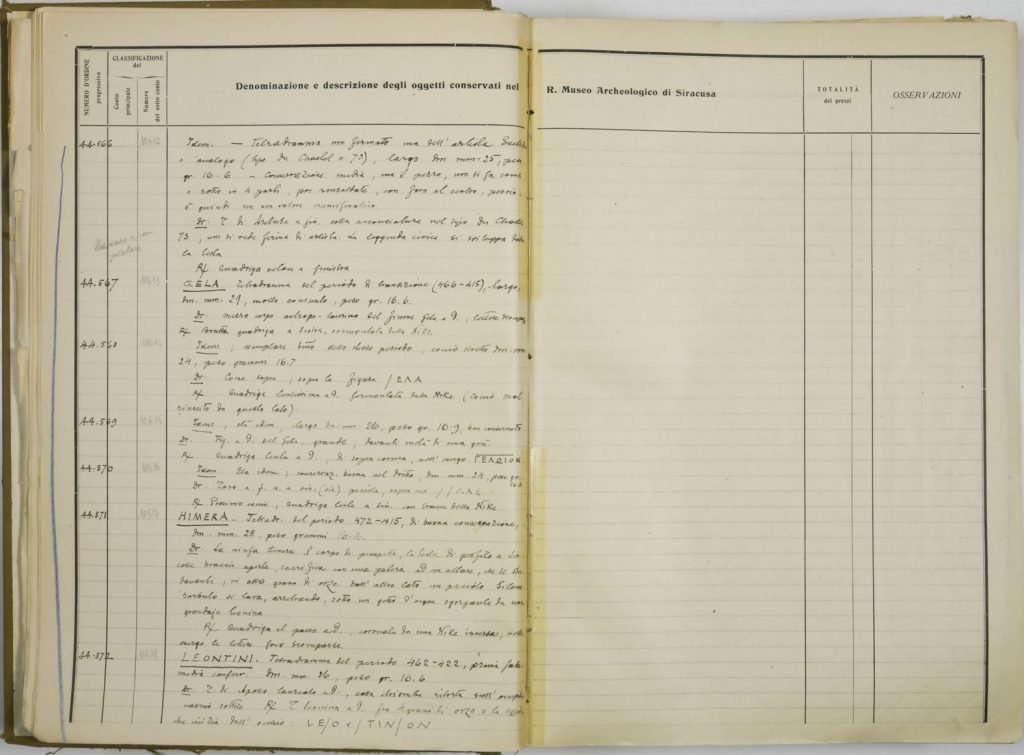 NUMERO D'ORDINE progressivo
CLASSIFICAZIONE del
Conto principale
Numero del sotto conto
Denominazione e descrizione degli oggetti conservati nel R. Museo Archeologico di Siracusa
TOTALITÀ dei prezzi
OSSERVAZIONI
44.566 Idem. — Tetradramma non firmato ma dell' artista
o analogo (tipo Du Chastel n. 73), largo dm. mm. 25, peso
gr. 16.6 — Conservazione media, ma il pezzo, non si sa come
è rotto in 4 parti, poi rinsaldate, con foro al centro,
è quindi un valore numismatico.
Dr. T. di Aretusa a sin. colla acconciatura nel tipo Du Chastel
73, non si vede firma di artista. La leggenda civica si sviluppa
la testa
R/ Quadriga veloce a sinistra
44.567 GELA. Tetradramma del periodo di transizione (466-415), largo,
dm. mm. 29, molto consunto, peso gr. 16.6.
Dr. mezzo corpo antropo-taurino del fiume Gela a d., lettere scomparse
R/ Brutta quadriga a destra, sormontata dalla Nike
44.568 Idem; esemplare dello stesso periodo, conio stretto dm. mm
24, peso grammi 16.7
Dr. Come sopra; sopra la figura /ΕΛΑ
R/ Quadriga lentissima a d. sormontata dalla Nike (conio mal
riuscito da questo lato)
44.569 Idem, età idem, largo dm. mm. 26, peso gr. 16.9, ben conservato
Dr. Fig. a d. del Gela, grande, davanti metà di una
R/ Quadriga lenta a d., di sopra corona, nell' esergo ΓΕΛΩΙΟΝ
44.570 Idem. Età idem; conservaz. buona nel dritto, dm. mm. 24, peso gr.
Dr. Toro a f. u. a sin. (sic)
R/ Pessimo conio, quadriga lenta a sin. con tracce della Nike
44.571 HIMERA. Tetrad. del periodo 472-415, di buona conservazione,
dm. mm. 28, peso grammi 16.
Dr. La ninfa Imera il corpo di prospetto, la testa di profilo a sin.
colle braccia aperte, sacrifica con una patera ad un altare, che le sta
davanti; in alto grano di orzo. Dall' altro lato un piccolo Sileno
barbuto si lava, sotto un getto d'acqua sgorgante da una
grondaja leonina
R/ Quadriga al passo a d., coronata da una Nike
esergo le lettere sono scomparse.
44.572 LEONTINI. Tetradramma del periodo 462-422, prima fase
media conserv. dm. mm. 26, peso gr. 16.6
Dr. T. di Apollo laureato a d., colla chioma ritorta sull' occipite
R/ T. leonina a d. fra 4 grani di orzo e la
LE/ON/TIN/ON